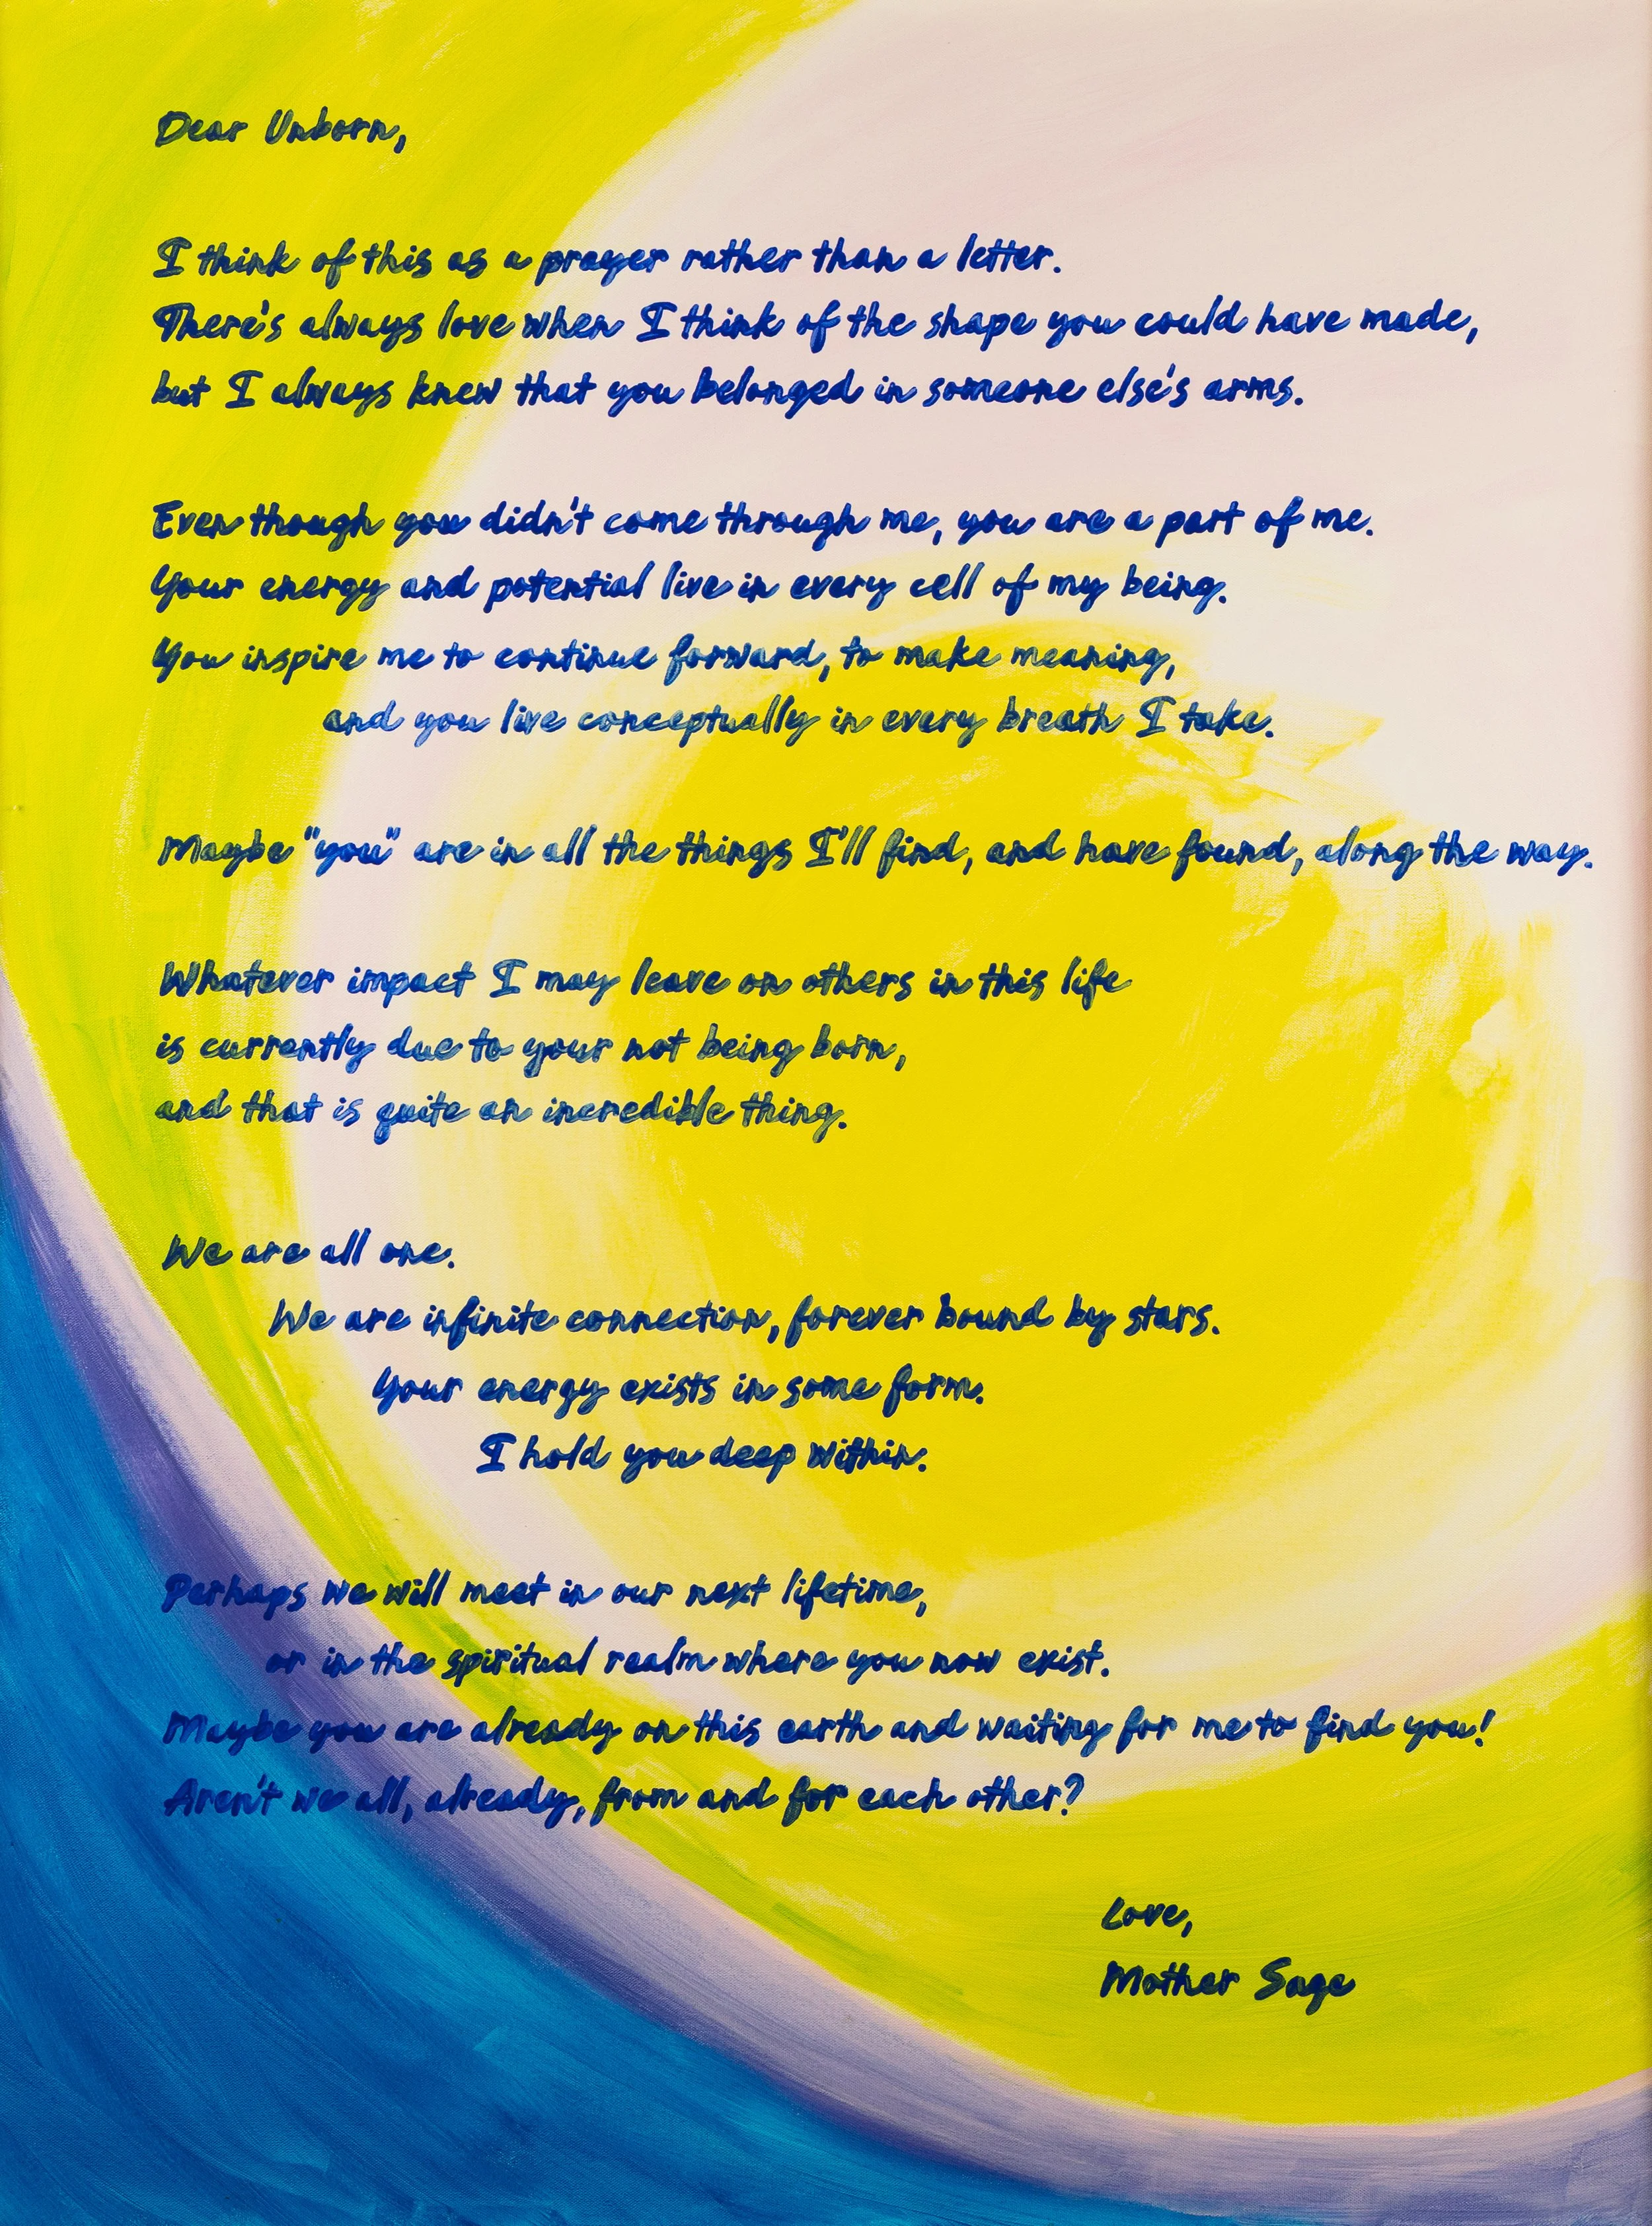 Dear Unborn,
I think of this as a prayer rather than a letter.
There's always love when I think of the shape you could have made,
but I always knew that you belonged in someone else's arms.
Even though you didn't come through me, you are a part of me.
Your energy and potential live in every cell of my being.
You inspire me to continue forward, to make meaning,
and you live conceptually in every breath I take.
Maybe "you" are in all the things I'll find, and have found, along the way.
Whatever impact I may leave on others in this life
is currently due to your not being born,
and that is quite an incredible thing.
We are all one.
We are infinite connection, forever bound by stars.
Your energy exists in some form.
I hold you deep within.
Perhaps we will meet in our next lifetime,
or in the spiritual realm where you now exist.
Maybe you are already on this earth and waiting for me to find you!
Aren't we all, already, from and for each other?
Love,
Mother Sage